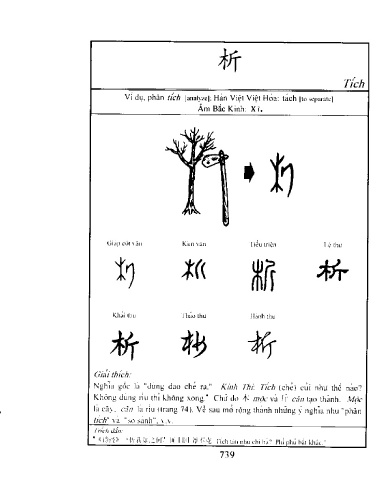 析
Tích
Ví dụ, phân tích [analyze]; Hán Việt Việt Hóa: tách [to separate]
Âm Bắc Kinh: Xi.
Giáp cốt văn Kim văn Tiểu triện Lệ thư
Khải thư Thảo thư Hành thư
Giải thích:
Nghĩa gốc là "dùng dao chẻ ra." Kinh Thi: Tích (chẻ) củi như thế nào?
Không dùng rìu thì không xong." Chữ do 木 mộc và 斤 cân tạo thành. Mộc
là cây, cân là rìu (trang 74). Về sau mở rộng thành những ý nghĩa như "phân
tích" và "so sánh", v.v.
Trích dẫn:
Tích tân như chi hà? Phỉ phủ bất khắc."
739